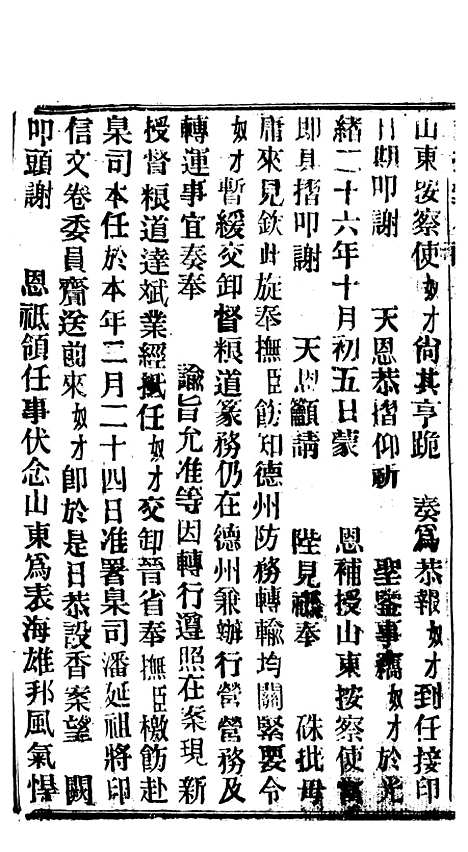 山東按察使奴才尙其亨跪 奏爲恭報奴才到任接印
日期叩謝 天恩恭摺仰祈 聖鑒事竊奴才於光
緒二十六年十月初五日蒙 恩補授山東按察使當
卽具摺叩謝 天恩籲請 陛見祗奉 硃批毋
庸來見欽此旋奉撫臣飭知德州防務轉輸均關緊要令
奴才暫緩交卸督粮道篆務仍在德州兼辦行營營務及
轉運事宜奏奉 諭旨允准等因轉行遵照在案現新
授督粮道達斌業經抵任奴才交卸晉省奉撫臣檄飭赴
臬司本任於本年二月二十四日准署臬司潘延祖將印
信文卷委員齎送前來奴才卽於是日恭設香案望 闕
叩頭謝 恩祗領任事伏念山東爲表海雄邦風氣悍